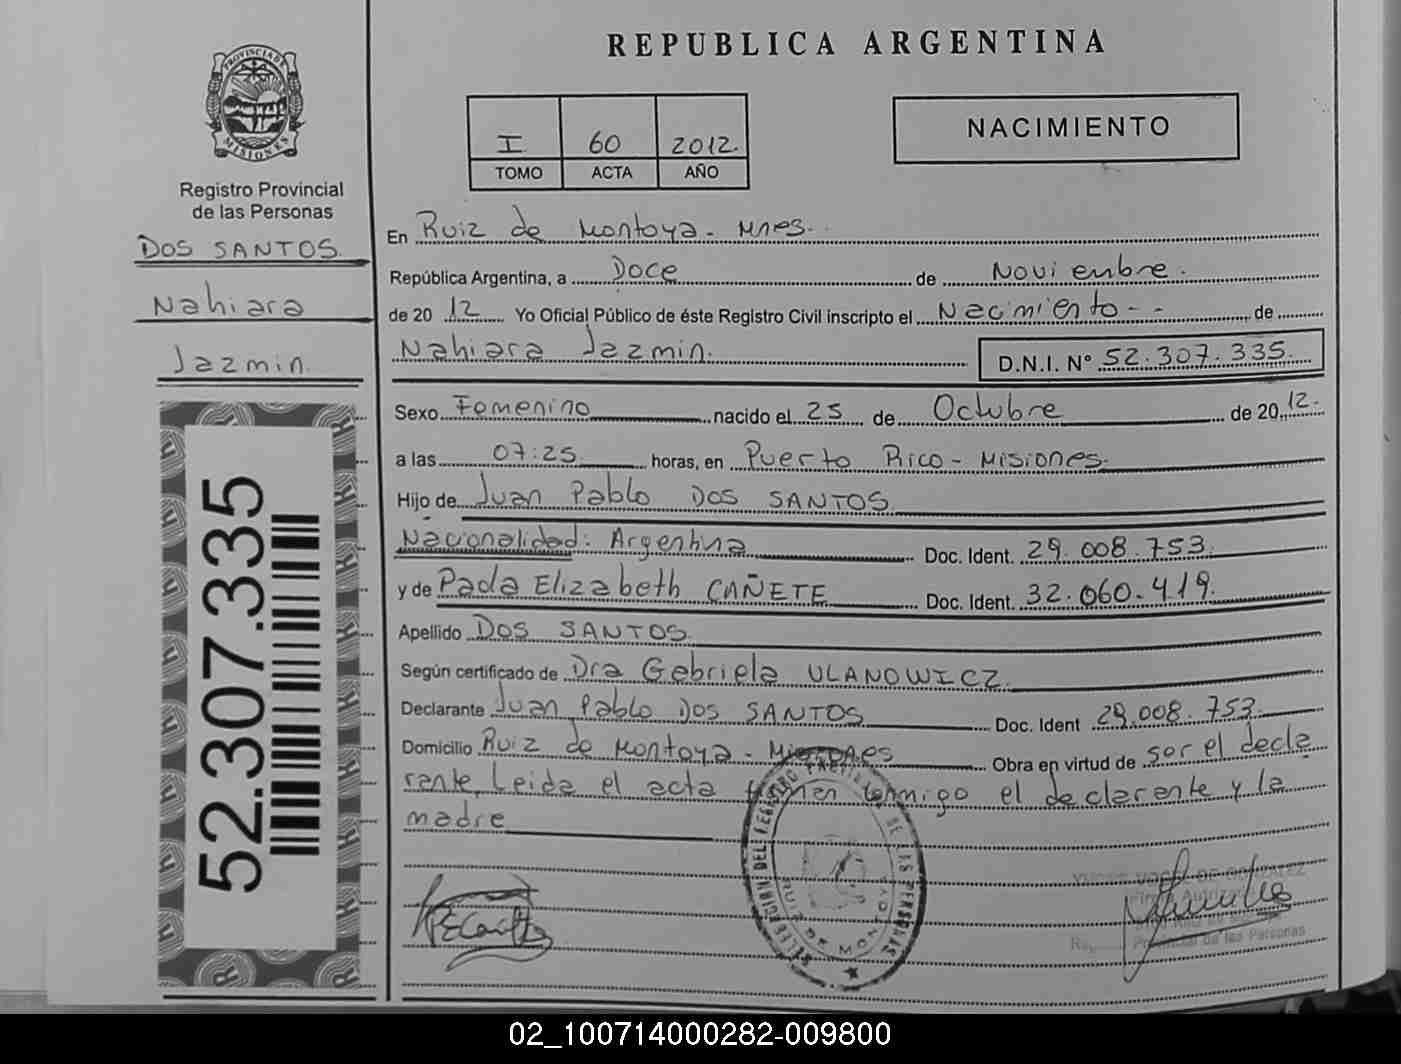 PROVINCIA DE
MISIONES
Registro Provincial
de las Personas
DOS SANTOS
Nahiara
Jazmin
52.307.335
REPUBLICA ARGENTINA
I 60 2012.
TOMO ACTA AÑO
NACIMIENTO
En Ruiz de Montoya - Mnes.
República Argentina, a Doce de Noviembre.
de 20 12 Yo Oficial Público de éste Registro Civil inscripto el Nacimiento - - de
Nahiara Jazmin. D.N.I. N° 52.307.335.
Sexo Femenino nacido el 25 de Octubre de 20 12.
a las 07:25 horas, en Puerto Rico - Misiones.
Hijo de Juan Pablo DOS SANTOS
Nacionalidad: Argentina Doc. Ident. 29.008.753.
y de Paola Elizabeth CAÑETE Doc. Ident. 32.060.419.
Apellido DOS SANTOS
Según certificado de Dra Gabriela ULANOWICZ
Declarante Juan Pablo DOS SANTOS Doc. Ident 29.008.753.
Domicilio Ruiz de Montoya - Misiones Obra en virtud de ser el decla
rante. Leida el acta firman conmigo el declarante y la
madre
DEL REGISTRO DE LAS PERSONAS
RUIZ DE MONTOYA
Provincial de las Personas
02_100714000282-009800